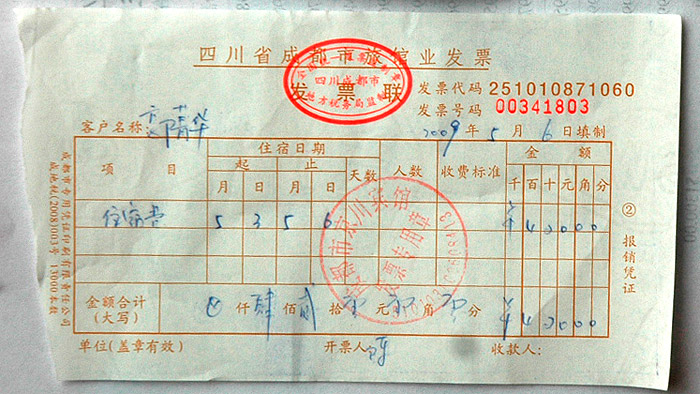 四川省成都市旅馆业发票
全国统一发票监制章
四川成都市
地方税务局监制
发票联
发票代码 251010871060
发票号码 00341803
客户名称:
2009年5月6日填制
项目 住宿日期 天数 人数 收费标准 金额
起 止
月 日 月 日 千 百 十 元 角 分
住宿费 5 3 5 6 ¥ 4 2 0 0 0
金额合计 (大写) 仟 肆 佰 贰 拾 零 元 零 角 零 分 ¥ 4 2 0 0 0
单位(盖章有效) 开票人: 收款人:
② 报销凭证
成都市京川宾馆
发票专用章